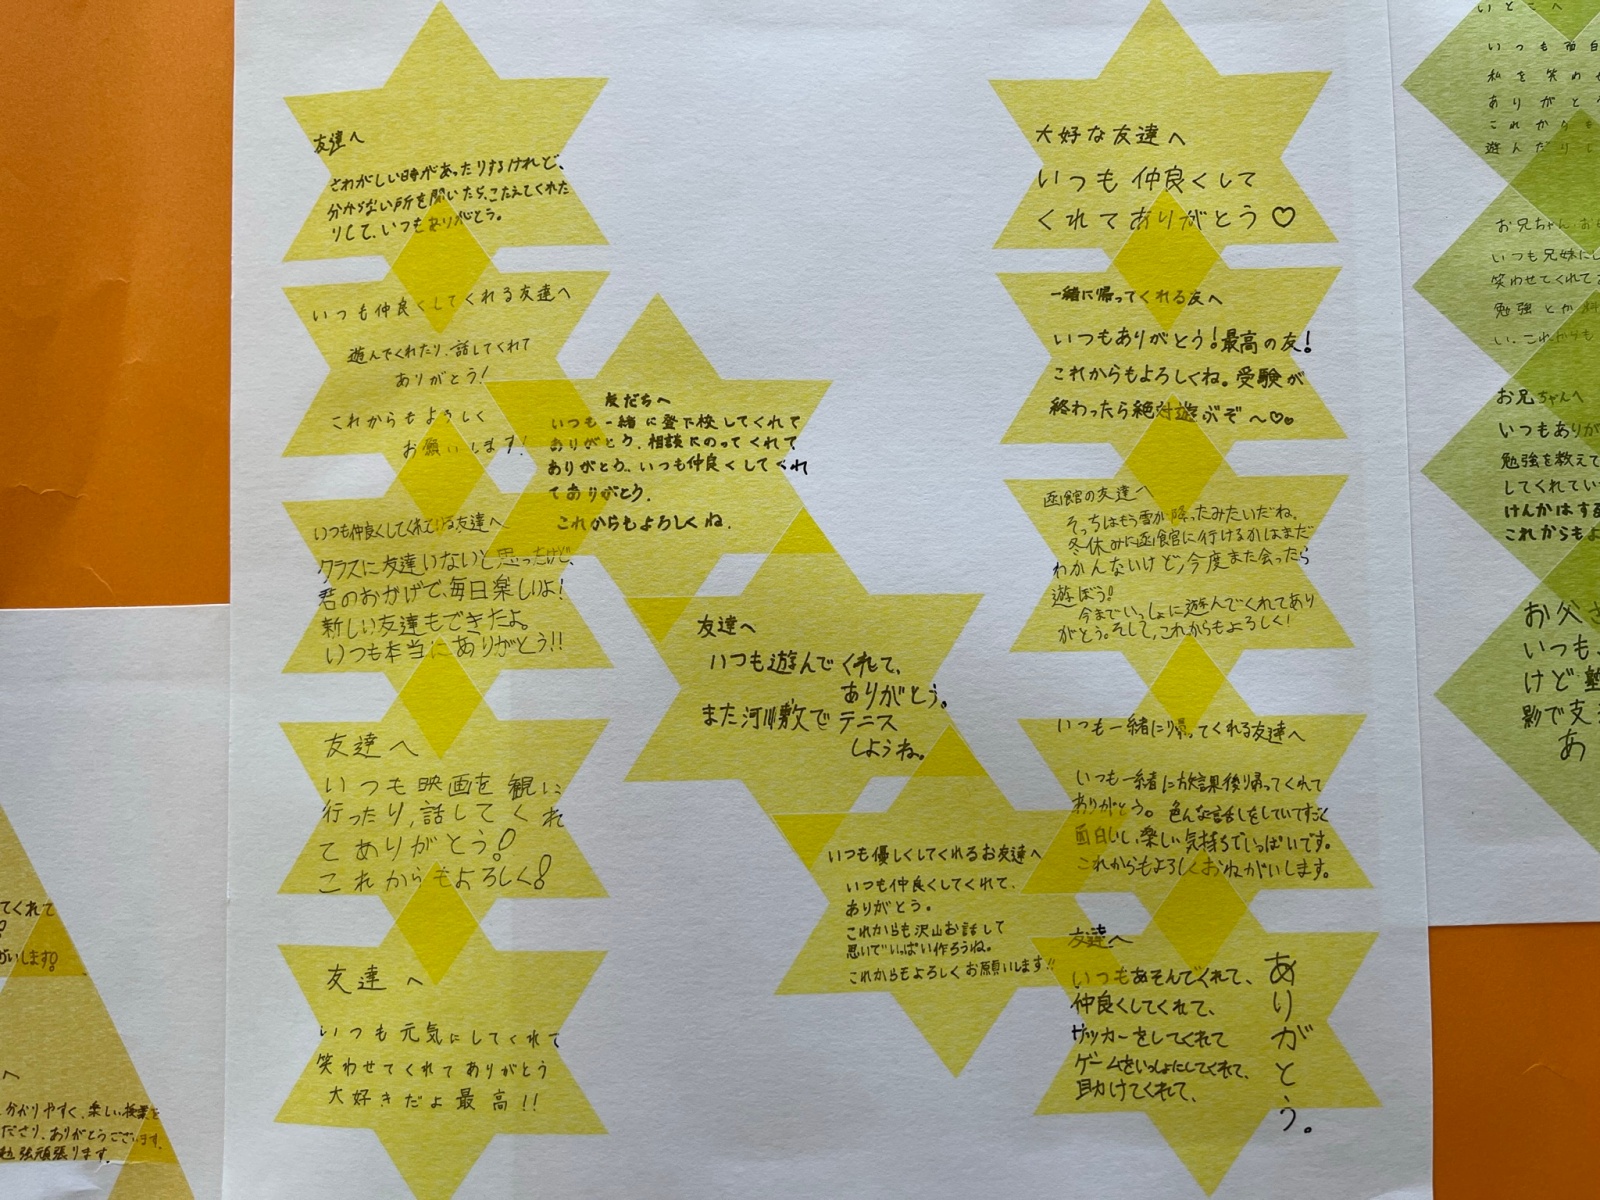 友達へ
さわがしい時があったりするけれど、
分からない所を聞いたら、こたえてくれた
りして、いつもありがとう。
いつも仲良くしてくれる友達へ
遊んでくれたり、話してくれて
ありがとう!
これからもよろしく
お願いします!
いつも仲良くしてくれている友達へ
クラスに友達いないと思ったけど、
君のおかげで、毎日楽しいよ!
新しい友達もできたよ。
いつも本当にありがとう!!
友達へ
いつも映画を観に
行ったり,話してくれ
てありがとう!
これからもよろしく!
友達へ
いつも元気にしてくれて
笑わせてくれてありがとう
大好きだよ最高!!
友だちへ
いつも一緒に登下校してくれて
ありがとう、相談にのってくれて
ありがとう、いつも仲良くしてくれ
てありがとう、
これからもよろしくね、
友達へ
いつも遊んでくれて、
ありがとう。
また河川敷でテニス
しようね。
いつも優しくしてくれるお友達へ
いつも仲良くしてくれて、
ありがとう。
これからも沢山お話して
思いでいっぱい作ろうね。
これからもよろしくお願いします!!
大好きな友達へ
いつも仲良くして
くれてありがとう♡
一緒に帰ってくれる友へ
いつもありがとう!最高の友!
これからもよろしくね。受験が
終わったら絶対遊ぶぞ〜♡
函館の友達へ
そっちはもう雪が降ったみたいだね。
冬休みに函館に行けるかはまだ
わかんないけど,今度また会ったら
遊ぼう!
今までいっしょに遊んでくれてあり
がとう。そして,これからもよろしく!
いつも一緒に帰ってくれる友達へ
いつも一緒に放課後帰ってくれて
ありがとう。色んな話しをしていてすごく
面白いし、楽しい気持ちでいっぱいです。
これからもよろしくおねがいします。
友達へ
いつもあそんでくれて、
仲良くしてくれて、
サッカーをしてくれて
ゲームをいっしょにしてくれて、
助けてくれて、
ありがとう。
いとこへ
いつも面白
私を笑わせ
ありがと
これからも
遊んだりし
お兄ちゃん
いつも兄妹に
笑わせてくれて
勉強とか
い、これからも
お兄ちゃんへ
いつもあり
勉強を教えて
してくれてい
けんかはする
これからもよ
お父さ
いつも、
けど塾
影で支
あ
てくれて
がいします!
へ
分かりやすく、楽しい授業を
ださり、ありがとうございます。
勉強頑張ります。